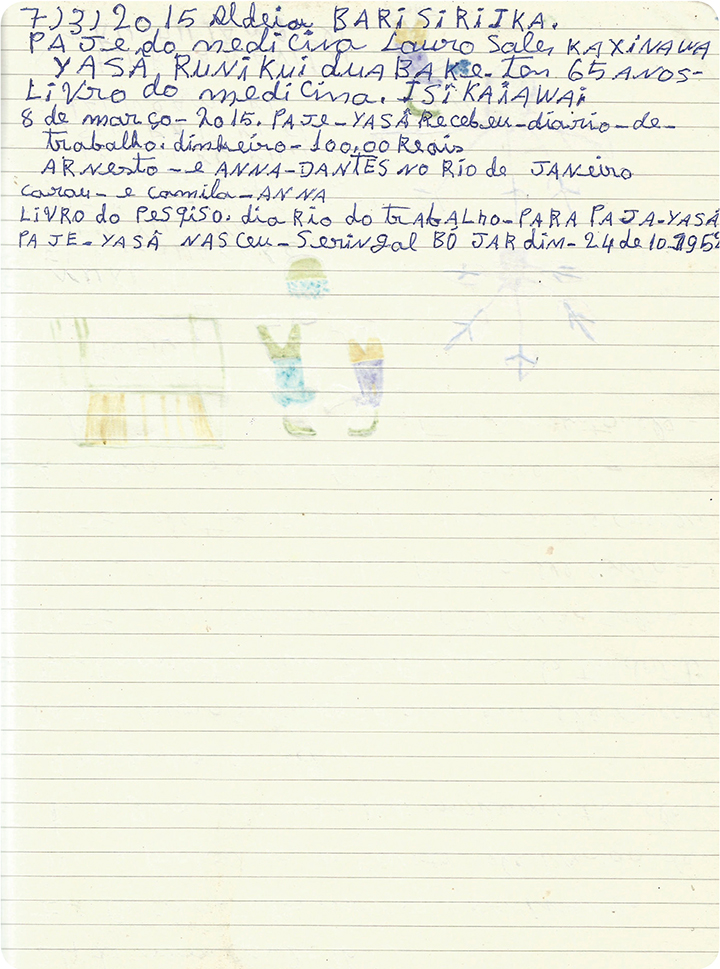 7)3)2015 Aldeia BARI SIRIIKA.
PAJÉ do medicina Lauro Sales KAXINAWA
YASÂ RUNIKUI dua BAKE. Ton 65 ANOS-
LIVRO do medicina. ISÎ KAÎAWAi
8 de março - 2015. PAJE - YASÂ Recebeu - diario - de -
trabalho: dinheiro - 100,00 Reais
ARNesto - e ANNA - DANTES NO RIO de JANeiro
carou - e camila - ANNA
LIVRO do PesQiso. diaRio do trabALho - PARA PAJA - YASÂ
PAJE - YASÂ NASceu - Seringal BÔ JARdim - 24 de 10